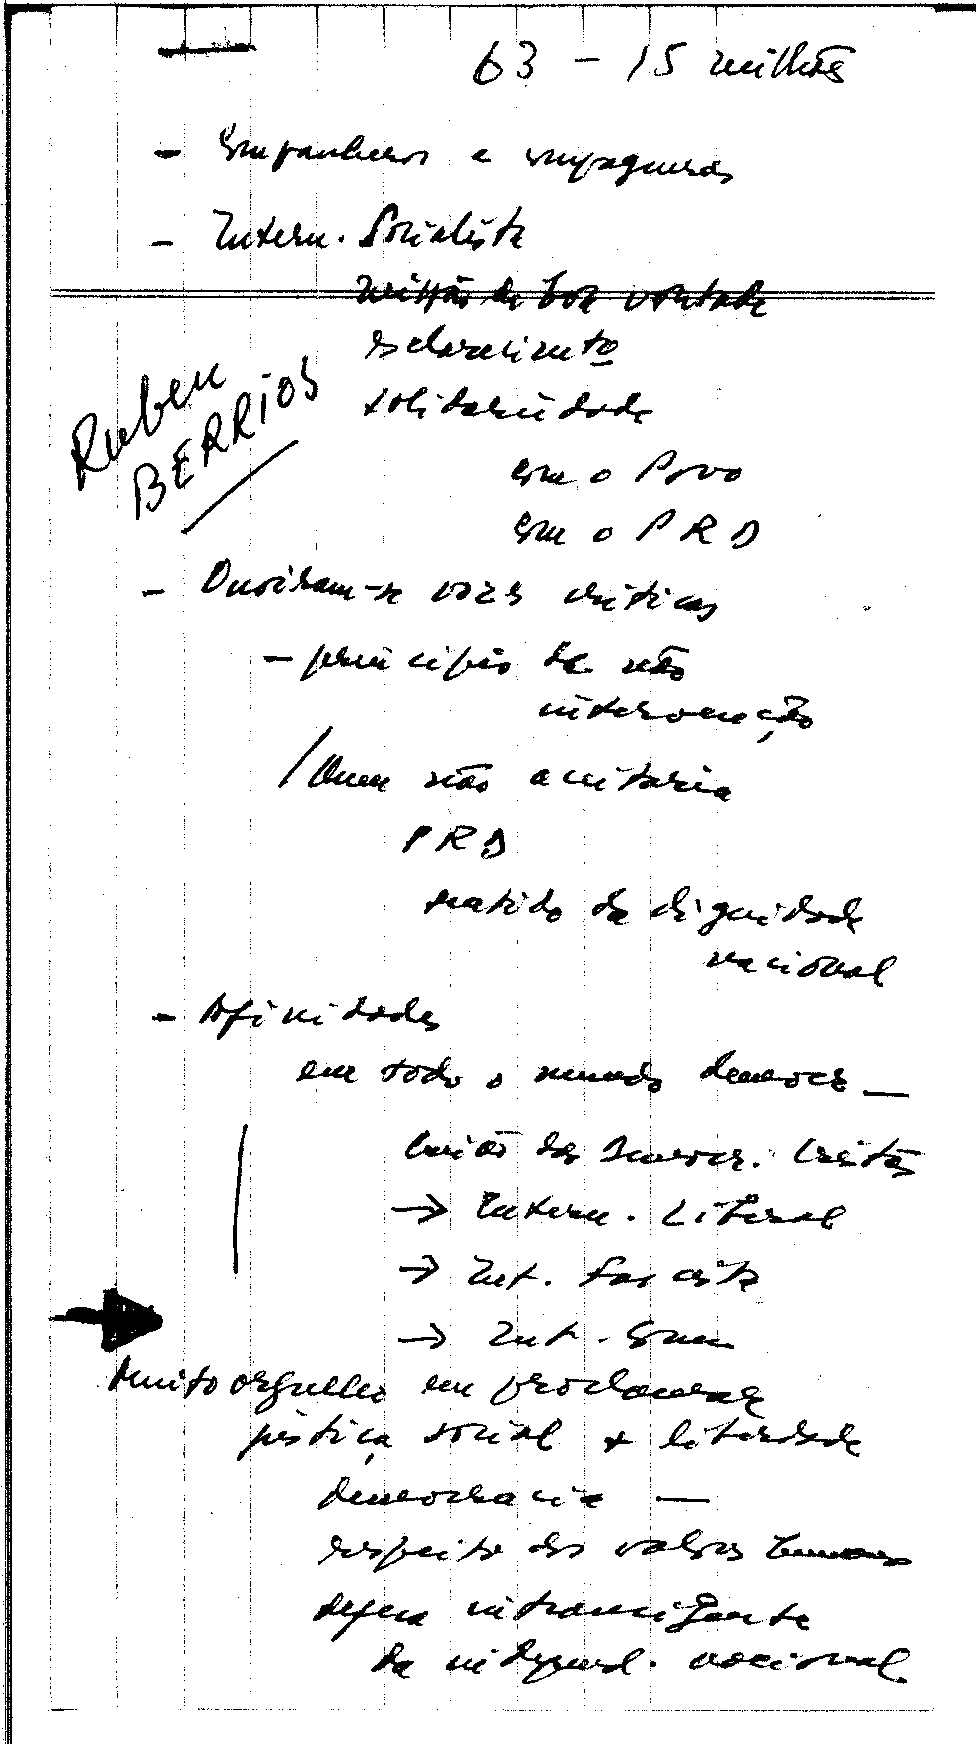 63 - 15 milhões
- Companheros e compagneras
- Intern. Socialista
missão de boa vontade
esclarecimento
solidariedade
Ruben
BERRIOS
com o Povo
com o PRD
- Ouviram-se vozes críticas
- princípio da não
intervenção
/ Quem não aceitaria
PRD
sentido da dignidade
nacional
- Afinidades
em todo o mundo democr —
União das Democr. Cristãs
→ Intern. Liberal
→ Int. Fascista
→ Int. Com
Muito orgulho em proclamar
justiça social + liberdade
democracia —
respeito dos valores humanos
defesa intransigente
da independ. nacional